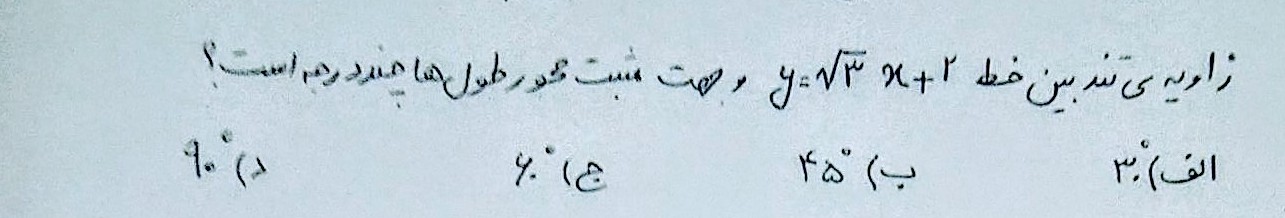 زاویه‌ی تند بین خط y=√۳ x+۲ و جهت مثبت محور طول‌ها چند درجه است؟
الف) ۳۰° ب) ۴۵° ج) ۶۰° د) ۹۰°